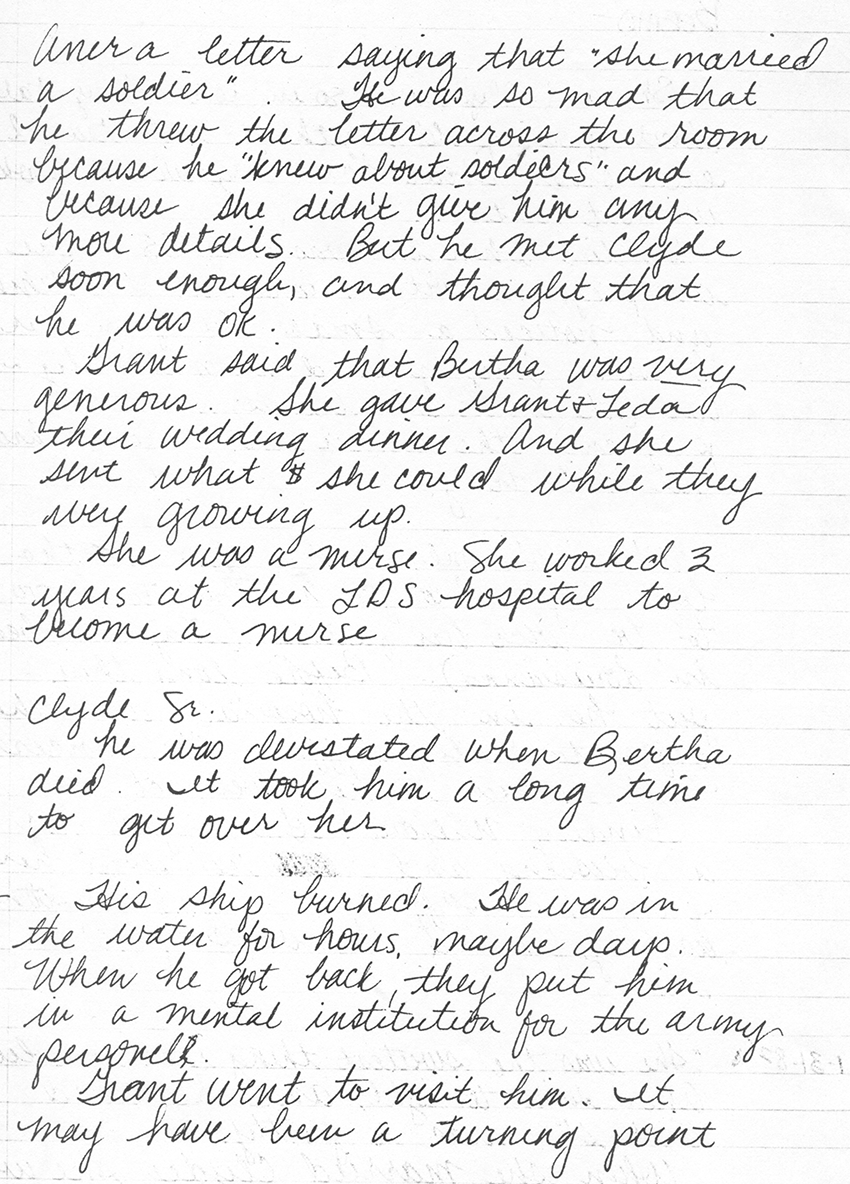 Aner a letter saying that "she married
a soldier". He was so mad that
he threw the letter across the room
because he "knew about soldiers" and
because she didn't give him any
more details. But he met Clyde
soon enough, and thought that
he was ok.
Grant said that Bertha was very
generous. She gave Grant & Leda
their wedding dinner. And she
sent what $ she could while they
were growing up.
She was a nurse. She worked 3
years at the LDS hospital to
become a nurse
Clyde Sr.
he was devistated when Bertha
died. It took him a long time
to get over her
His ship burned. He was in
the water for hours, maybe days.
When he got back, they put him
in a mental institution for the army
personell.
Grant went to visit him. It
may have been a turning point